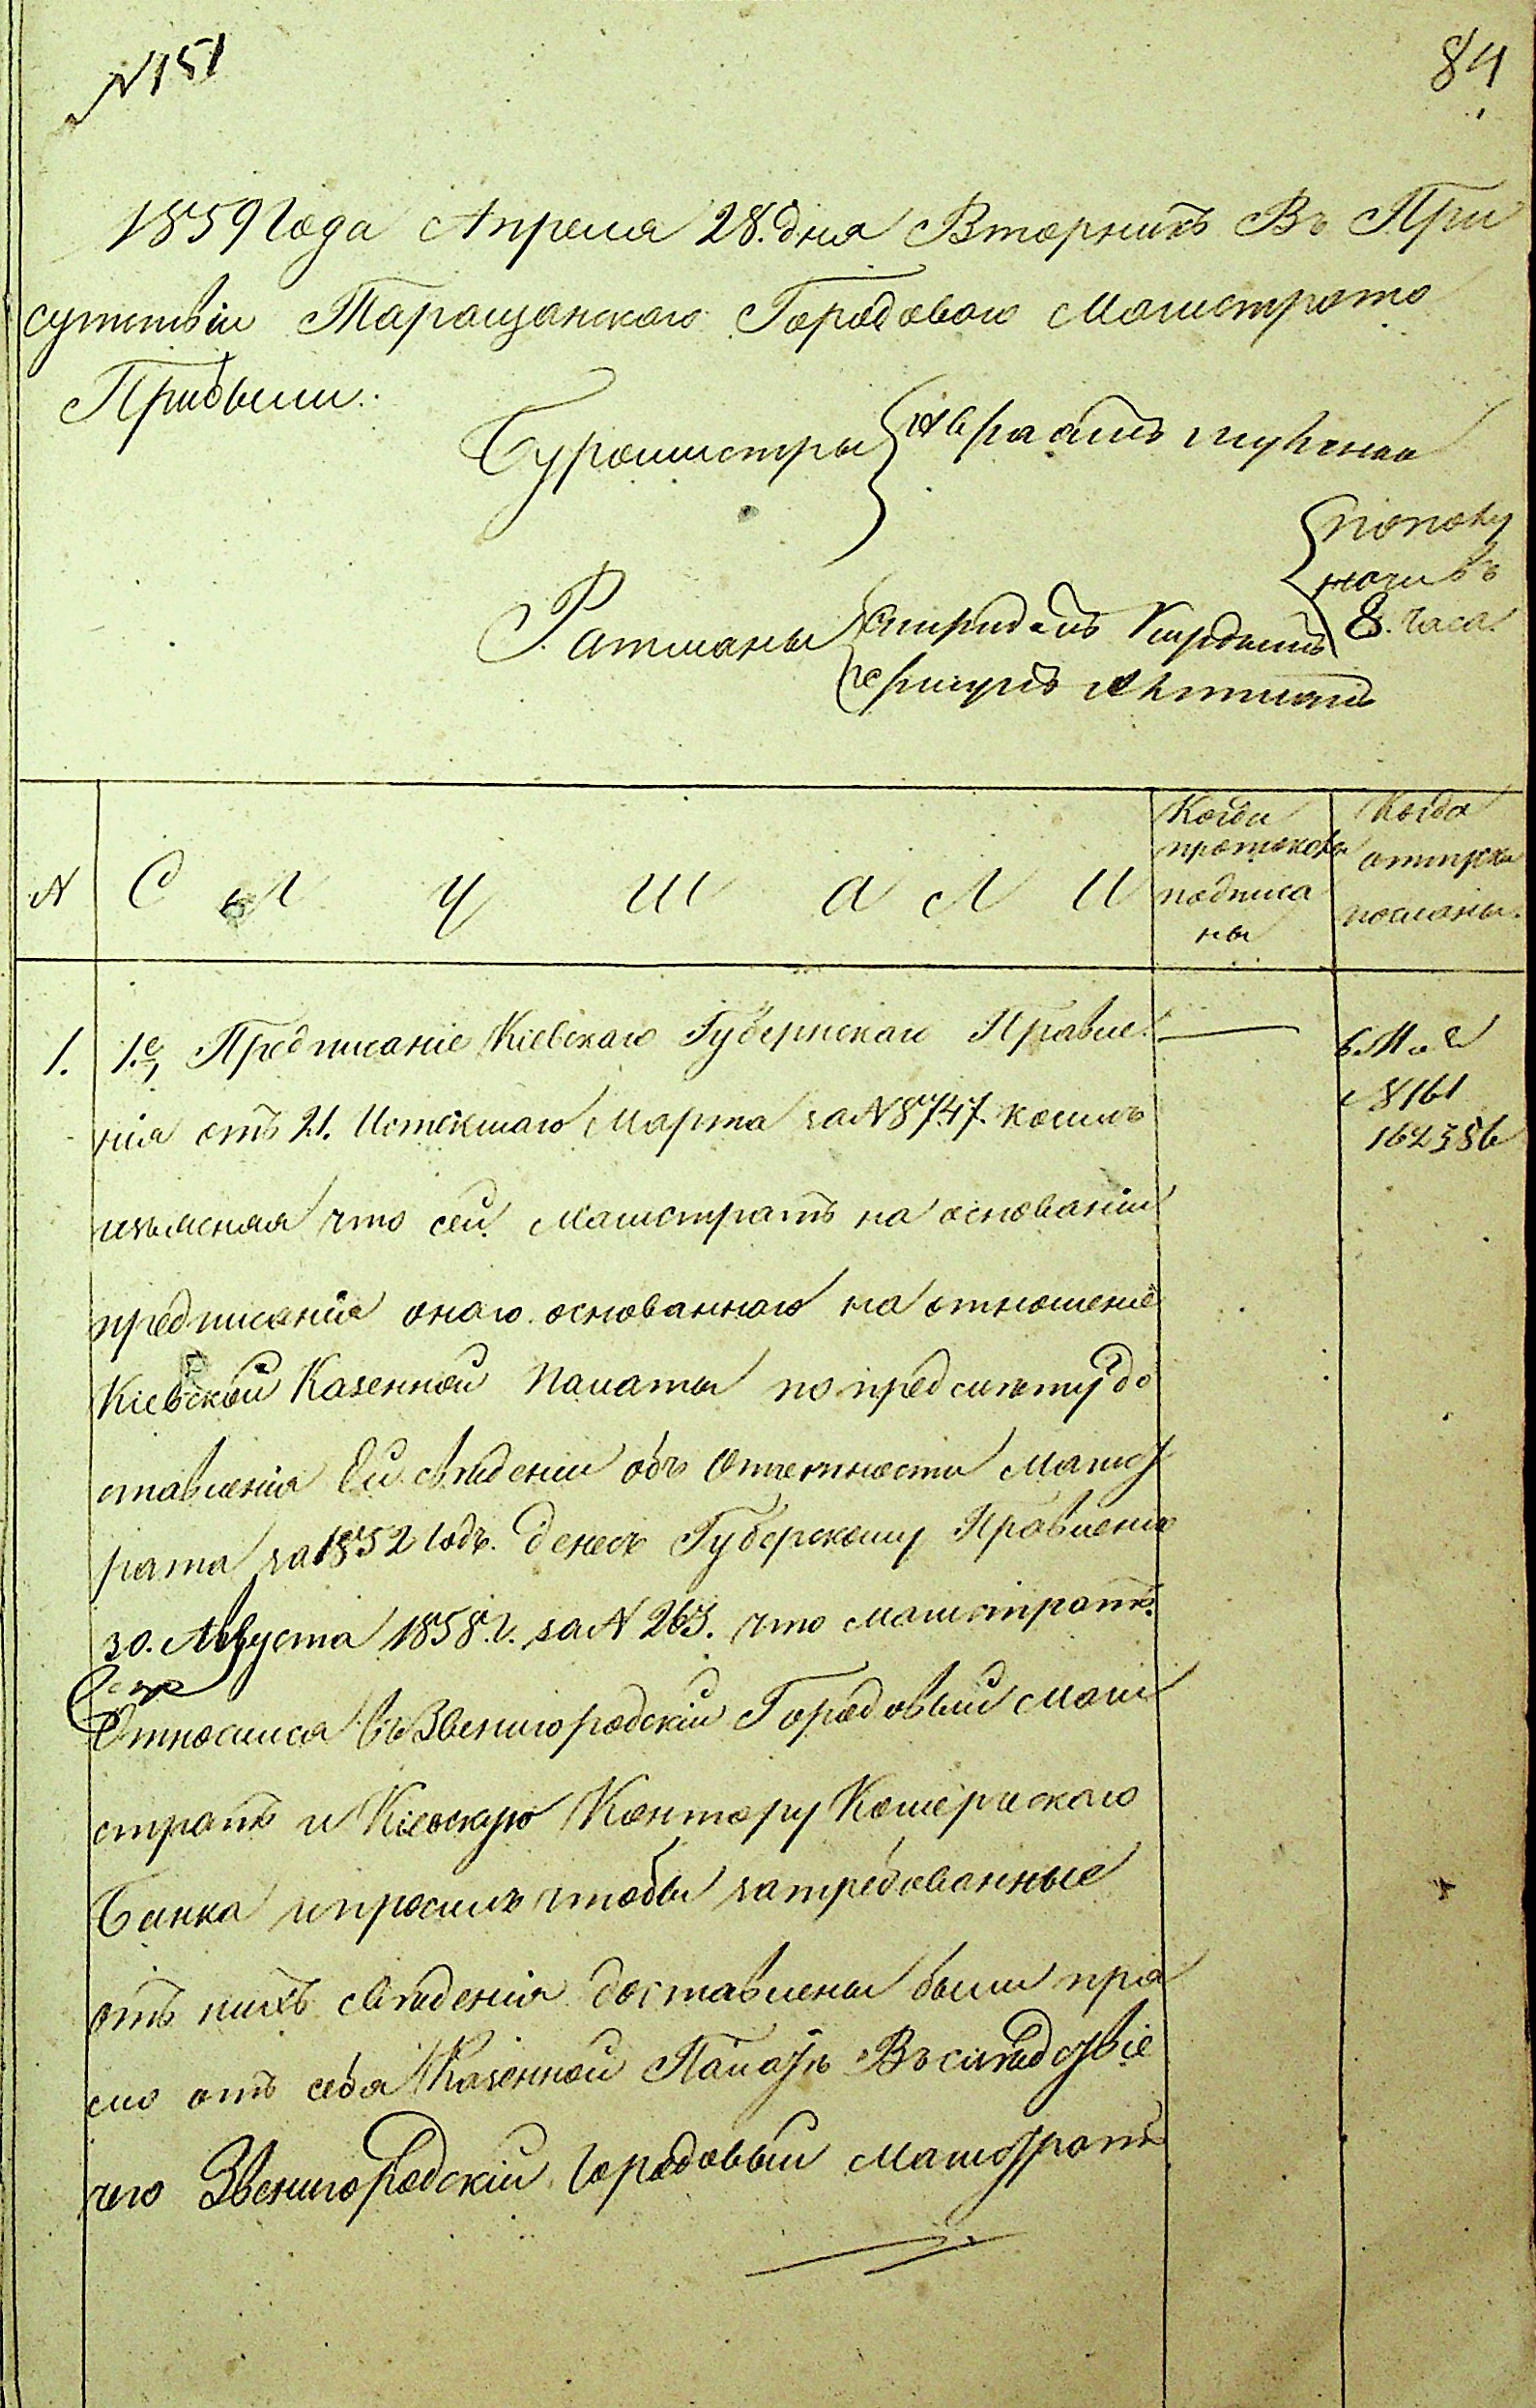 № 151
84
1859 Года Апреля 28. дня Вторникъ Въ При
сутствіи Таращанского Городоваго Магистрата
Прибыли:
Бургомистры
Ратманы
Спиридонъ
Григурiй
пополу
ночи въ
8. часа.
№
С л у ш а л и
Когда
протоколы
подписа
ны
Когда
отпуски
посланы.
1.
1.е, Предписаніе Кіевскаго Губернскаго Правле
нія отъ 21. Истекшаго Марта за № 8747. коимъ
изъясняя что сей Магистратъ на основаніи
предписанія онаго основаннаго на отношеніе
Кіевской Казенной Палаты по предмету до
ставленія Ей свѣденіи объ Отчетности Магист
рата за 1852 годъ. донесъ Губерскому Правленію
30. Августа 1858. г. за № 263. что Магистратъ
Относился въ Звенигородскій Городовый Маги
стратъ и Кіевскую Контору Комерческаго
Банка и просилъ чтобы затребованные
отъ нихъ свѣденія доставлены были пря
мо отъ себя Казенной Палатѣ Въ слѣдствіе
чего Звенигородскій Городовый Магистратъ
6. Мая
№ 161
162 35 6